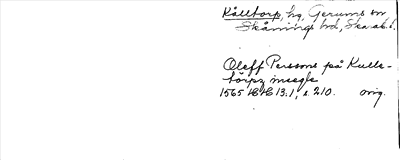 Kålltorp, hg, Gerums sn
Skånings hd, Skarab. l.
Oleff Perssons på Kulle-
törpz insegle
1565 HH 13:1, s. 210. orig.